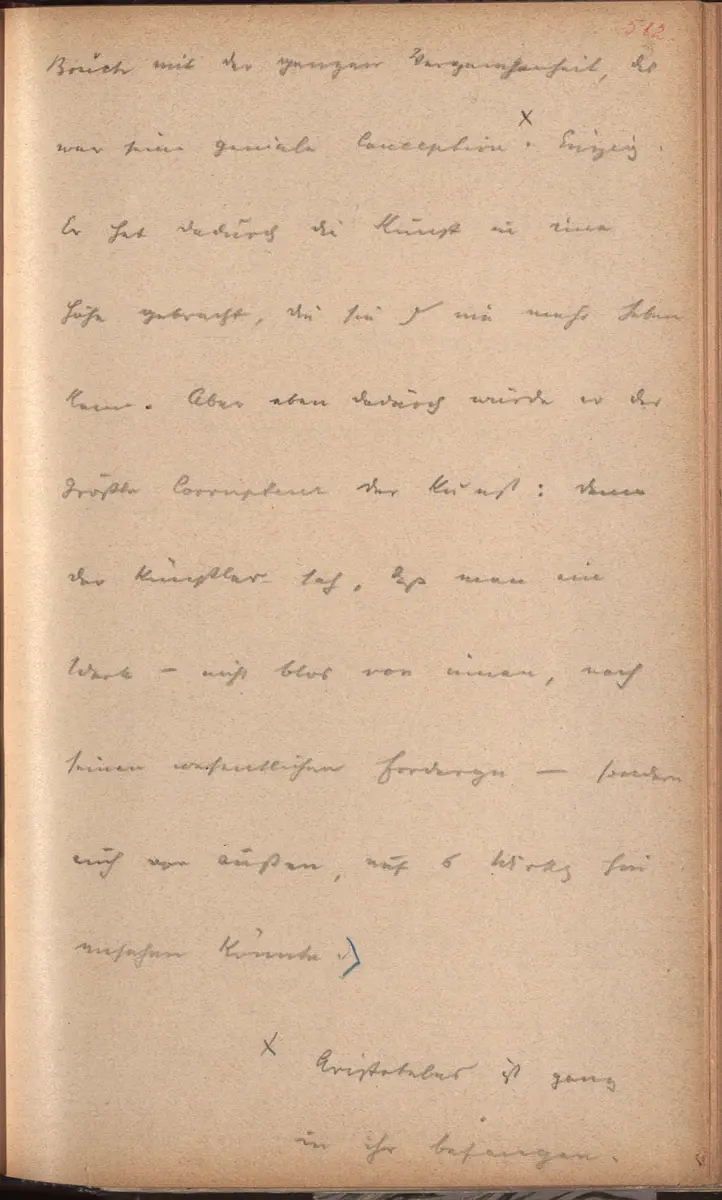 512
Bruch mit der ganzen Vergangenheit, das
war seine geniale Conception x. Einzig.
Er hat dadurch die Kunst in eine
Höhe gebracht, die sie nie mehr haben
kann. Aber eben dadurch wurde er der
größte Corrupteur der Kunst: denn
der Künstler sah, daß man ein
Werk – nicht blos von innen, nach
seinen wesentlichen Fordergn – sondern
auch von außen, auf s Wirkg hin
ansehen könnte.
x Aristoteles ist ganz
in ihr befangen.